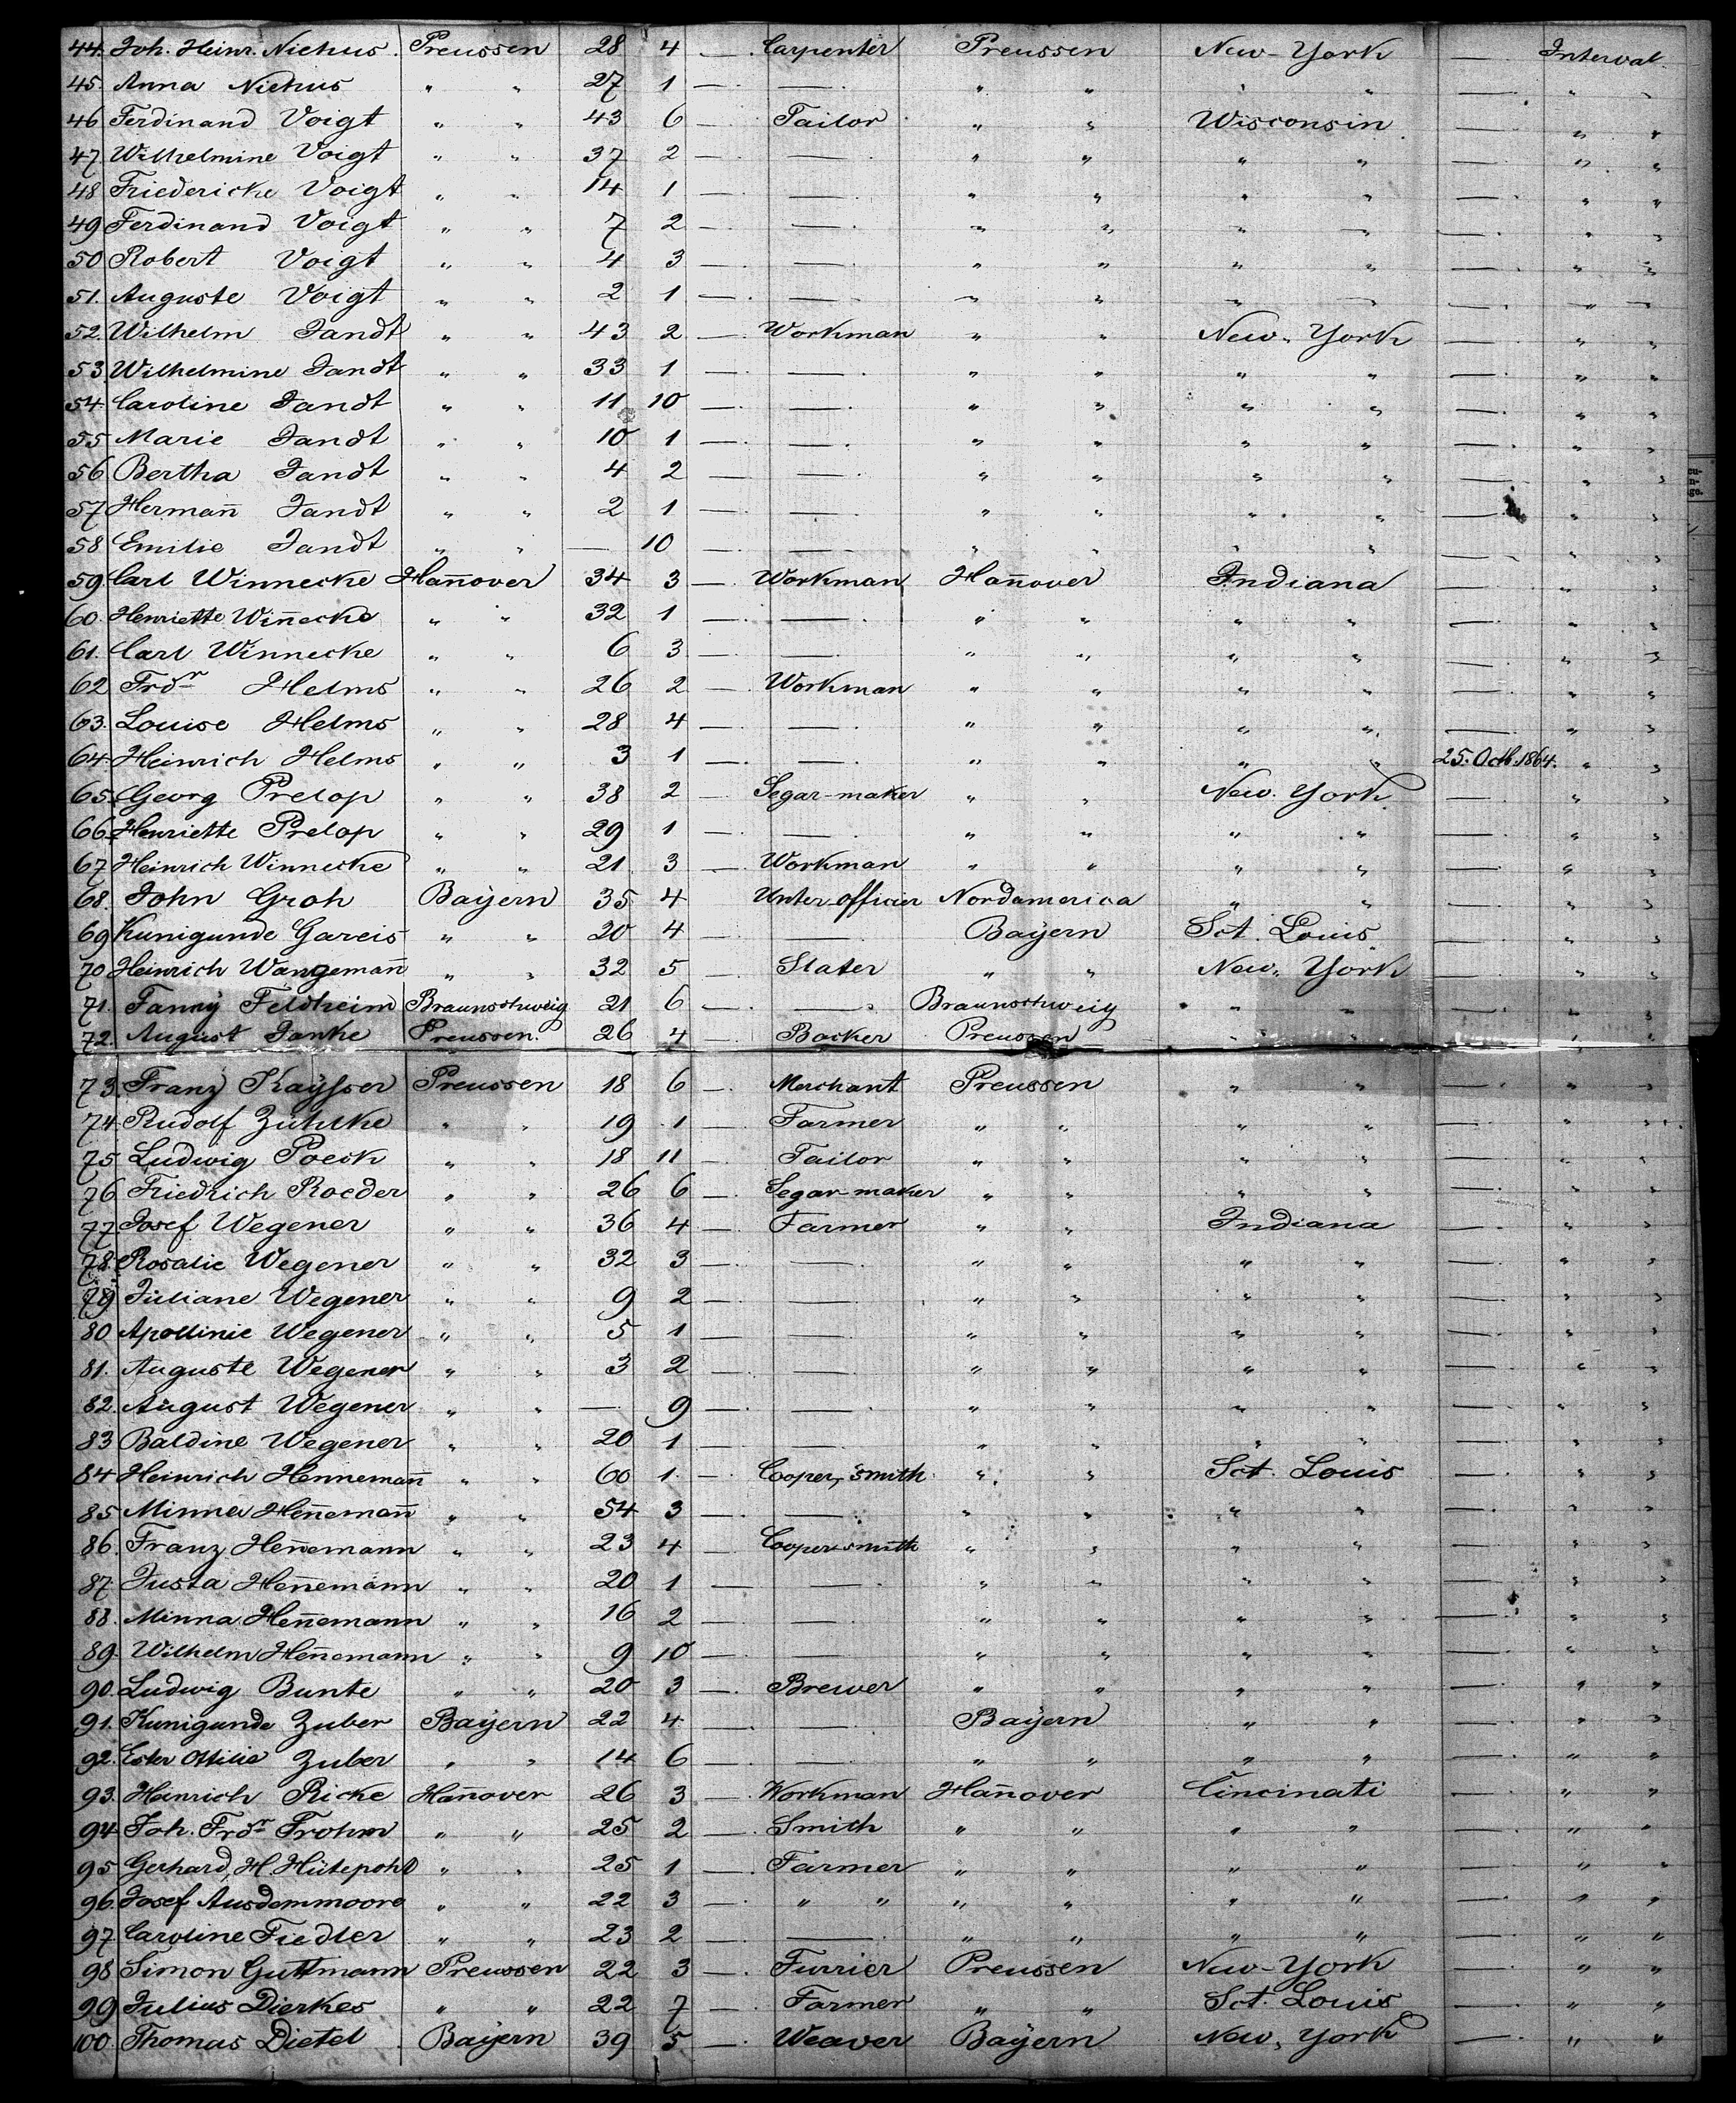 44. Joh. Heinr. Niehus. Preussen 28 4 — Carpenter Preussen New-York — Interval.
45. Anna Niehus " " 27 1 — — " " " " — " "
46 Ferdinand Voigt " " 43 6 — Tailor " " Wisconsin — " "
47. Wilhelmine Voigt " " 37 2 — — " " " " — " "
48 Friedericke Voigt " " 14 1 — — " " " " — " "
49 Ferdinand Voigt " " 7 2 — — " " " " — " "
50 Robert Voigt " " 4 3 — — " " " " — " "
51. Auguste Voigt " " 2 1 — — " " " " — " "
52. Wilhelm Jandt " " 43 2 — Workman " " New-York — " "
53. Wilhelmine Jandt " " 33 1 — — " " " " — " "
54. Caroline Jandt " " 11 10 — — " " " " — " "
55 Marie Jandt " " 10 1 — — " " " " — " "
56 Bertha Jandt " " 4 2 — — " " " " — " "
57 Hermañ Jandt " " 2 1 — — " " " " — " "
58 Emilie Jandt " " — 10 — — " " " " — " "
59. Carl Winnecke Hañover 34 3 — Workman Hañover Indiana — " "
60. Henriette Wiñecke " " 32 1 — — " " " " — " "
61. Carl Winnecke " " 6 3 — — " " " " — " "
62 Frdr Helms " " 26 2 — Workman " " " " — " "
63. Louise Helms " " 28 4 — — " " " " — " "
64. Heinrich Helms " " 3 1 — — " " " " 25. Oct. 1864. " "
65. Georg Prelop " " 38 2 — Segar-maker " " New-York — " "
66. Henriette Prelop " " 29 1 — — " " " " — " "
67. Heinrich Winnecke " " 21 3 — Workman " " " " — " "
68. John Groh Bayern 35 4 Unter officier Nordamerica " " — " "
69 Kunigunde Gareis " " 20 4 — — Bayern Sct. Louis — " "
70 Heinrich Wangemañ " " 32 5 — Slater " " New-York — " "
71. Fanny Feldheim Braunschweig 21 6 — — Braunschweig " " — " "
72. August Janke Preussen. 26 4 — Backer Preussen " " — " "
73. Franz Kaysser Preussen 18 6 — Merchant Preussen " " — " "
74. Rudolf Zühlke " " 19 1 — Farmer " " " " — " "
75 Ludwig Poeck " " 18 11 — Tailor " " " " — " "
76 Friedrich Roeder " " 26 6 — Segar-maker " " " " — " "
77. Josef Wegener " " 36 4 — Farmer " " Indiana — " "
78. Rosalie Wegener " " 32 3 — — " " " " — " "
79 Juliane Wegener " " 9 2 — — " " " " — " "
80 Apollinie Wegener " " 5 1 — — " " " " — " "
81. Auguste Wegener " " 3 2 — — " " " " — " "
82. August Wegener " " — 9 — — " " " " — " "
83 Baldine Wegener " " 20 1 — — " " " " — " "
84 Heinrich Hennemañ " " 60 1 — Cooper, smith " " Sct. Louis — " "
85 Minna Heñemañ " " 54 3 — — " " " " — " "
86. Franz Heñemann " " 23 4 — Cooper-smith " " " " — " "
87. Justa Heñemann " " 20 1 — — " " " " — " "
88. Minna Heñemann " " 16 2 — — " " " " — " "
89. Wilhelm Heñemann " " 9 10 — — " " " " — " "
90. Ludwig Bunte " " 20 3 — Brewer " " " " — " "
91. Kunigunde Zuber Bayern 22 4 — — Bayern " " — " "
92. Ester Ottilie Zuber " " 14 6 — — " " " " — " "
93. Heinrich Ricke Hañover 26 3 — Workman Hañover Cincinati — " "
94 Joh. Frdr Frohm " " 25 2 — Smith " " " " — " "
95 Gerhard, H. Hütepohl " " 25 1 — Farmer " " " " — " "
96. Josef Ausdemmoore " " 22 3 — " " " " " " — " "
97. Caroline Fiedler " " 23 2 — — " " " " — " "
98 Simon Guttmann Preussen 22 3 — Furrier Preussen New-York — " "
99 Julius Dierkes " " 22 7 — Farmer " " Sct. Louis — " "
100. Thomas Dietel Bayern 39 5 — Weaver Bayern New-York — " "